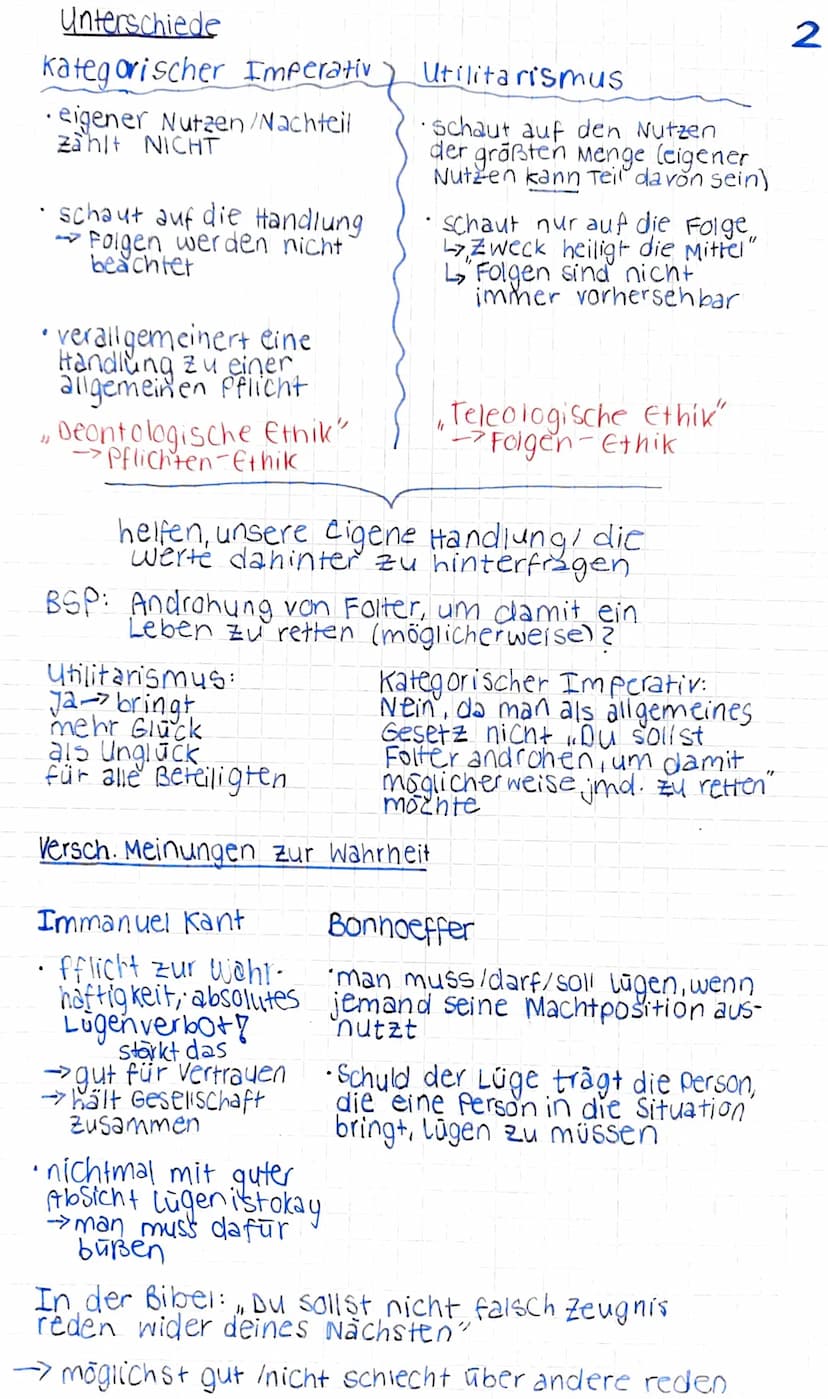 Unterschiede
2
Kategorischer Imperativ
• eigener Nutzen/Nachteil
zählt NICHT
• schaut auf die Handlung
→ Folgen werden nicht
beachtet
• verallgemeinert eine
Handlung zu einer
allgemeinen Pflicht
„Deontologische Ethik"
→ Pflichten-Ethik
Utilitarismus
• schaut auf den Nutzen
der größten Menge (eigener
Nutzen kann Teil davon sein)
• schaut nur auf die Folge
↳ „Zweck heiligt die Mittel"
↳ Folgen sind nicht
immer vorhersehbar
„Teleologische Ethik"
→ Folgen-Ethik
helfen, unsere eigene Handlung/die
Werte dahinter zu hinterfragen
BSP: Androhung von Folter, um damit ein
Leben zu retten (möglicherweise)?
Utilitarismus:
Ja → bringt
mehr Glück
als Unglück
für alle Beteiligten
Kategorischer Imperativ:
Nein, da man als allgemeines
Gesetz nicht „Du sollst
Folter androhen, um damit
möglicherweise jmd. zu retten"
möchte
Versch. Meinungen zur Wahrheit
Immanuel Kant
• Pflicht zur Wahr-
haftigkeit, absolutes
Lügenverbot?
stärkt das
→ gut für Vertrauen
→ hält Gesellschaft
zusammen
• nichtmal mit guter
Absicht Lügen ist okay
→ man muss dafür
büßen
Bonhoeffer
• man muss/darf/soll lügen, wenn
jemand seine Machtposition aus-
nutzt
• Schuld der Lüge trägt die Person,
die eine Person in die Situation
bringt, lügen zu müssen
In der Bibel: „Du sollst nicht falsch Zeugnis
reden wider deines Nächsten"
→ möglichst gut /nicht schlecht über andere reden